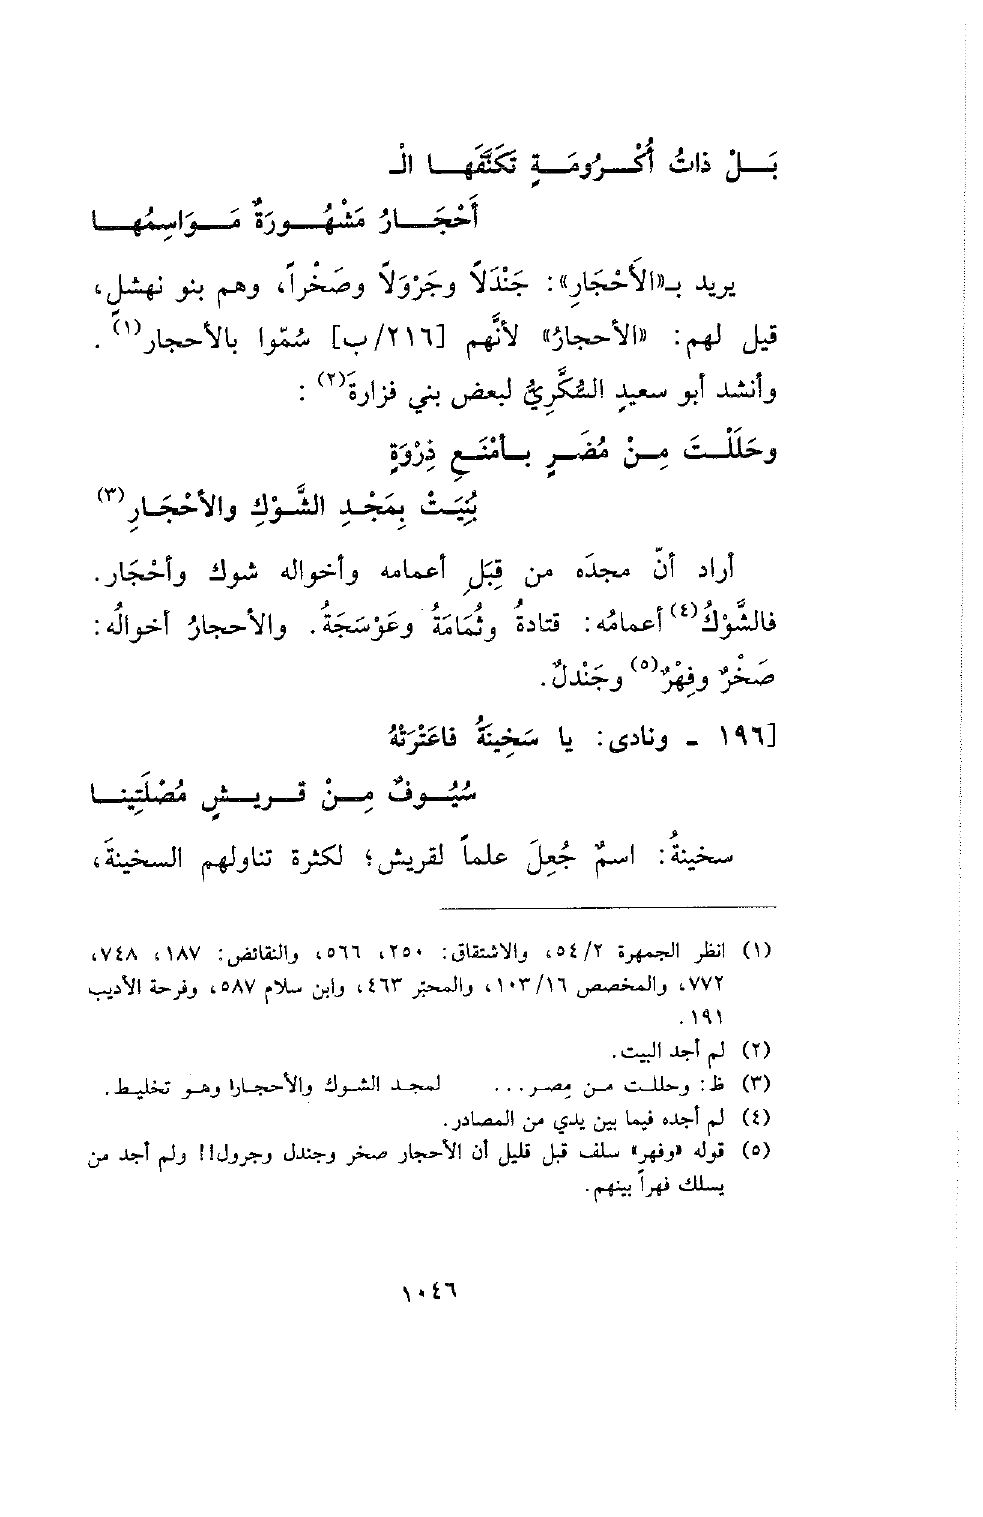 بَـلْ ذاتُ أُكْـرُومَـةٍ تَكَنَّفَهـا الْـ
أَحْجَـارُ مَشْهُـورَةٌ مَـوَاسِمُهـا
يريد بـ«الأَحْجَارِ»: جَنْدَلاً وجَرْوَلاً وصَخْراً، وهم بنو نهشلٍ،
قيل لهم: «الأحجارُ» لأنَّهم [٢١٦/ب] سُمّوا بالأحجار(١).
وأنشد أبو سعيدٍ السُّكَّرِيُّ لبعض بني فزارةَ(٢):
وحَلَلْـتَ مِـنْ مُضَـرٍ بـأَمْنَـعِ ذِرْوَةٍ
بُنِيَـتْ بِمَجْـدِ الشَّـوْكِ والأحْجَـارِ(٣)
أراد أنّ مجدَه من قِبَلِ أعمامه وأخواله شوك وأحْجَار.
فالشَّوْكُ(٤) أعمامُه: قتادةُ وثُمَامَةُ وعَوْسَجَةُ. والأحجارُ أخوالُه:
صَخْرٌ وفِهْرٌ(٥) وجَنْدلٌ.
[١٩٦ ـ ونادى: يا سَخِينَةُ فاعْتَرَتْهُ
سُيُـوفٌ مِـنْ قـريـشٍ مُصْلَتِينـا
سخينةُ: اسمٌ جُعِلَ علماً لقريش؛ لكثرة تناولهم السخينةَ،
(١) انظر الجمهرة ٥٤/٢، والاشتقاق: ٢٥٠، ٥٦٦، والنقائض: ١٨٧، ٧٤٨،
٧٧٢، والمخصص ١٠٣/١٦، والمحبّر ٤٦٣، وابن سلام ٥٨٧، وفرحة الأديب
١٩١.
(٢) لم أجد البيت.
(٣) ظ: وحللـت مـن مصـر... لمجـد الشـوك والأحجـارا وهـو تخليـط.
(٤) لم أجده فيما بين يدي من المصادر.
(٥) قوله «وفهر» سلف قبل قليل أن الأحجار صخر وجندل وجرول!! ولم أجد من
يسلك فهراً بينهم.
١٠٤٦